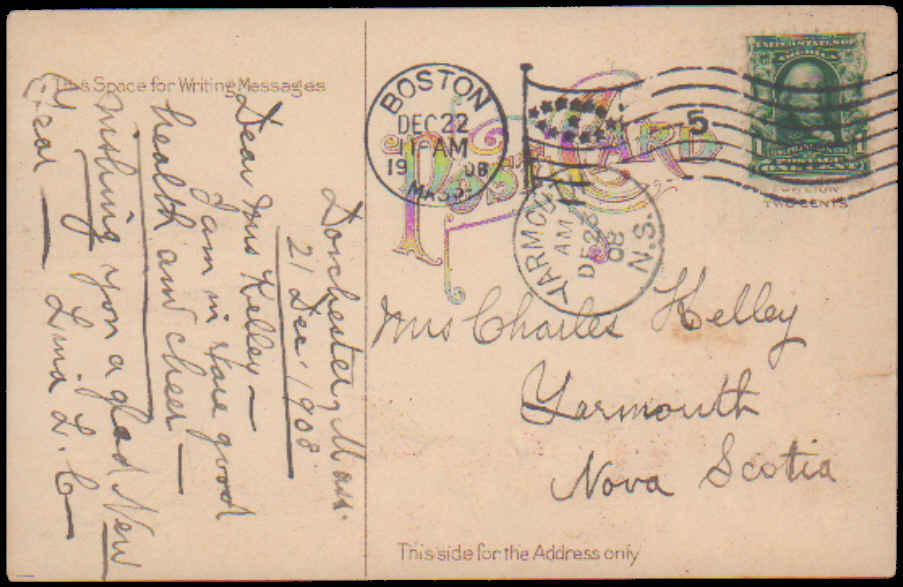 This Space for Writing Messages
Dorchester, Mass.
21 Dec. 1908
Dear Mrs Kelley —
I am in good
health and cheer —
wishing you a glad New
Year —
L. C —
BOSTON
DEC 22
11 AM
1908
MASS.
5
POST CARD
YARMOUTH
AM
DE 26
08
N.S.
UNITED STATES OF
AMERICA
POSTAGE
TWO CENTS
Mrs Charles Kelley
Yarmouth
Nova Scotia
This side for the Address only